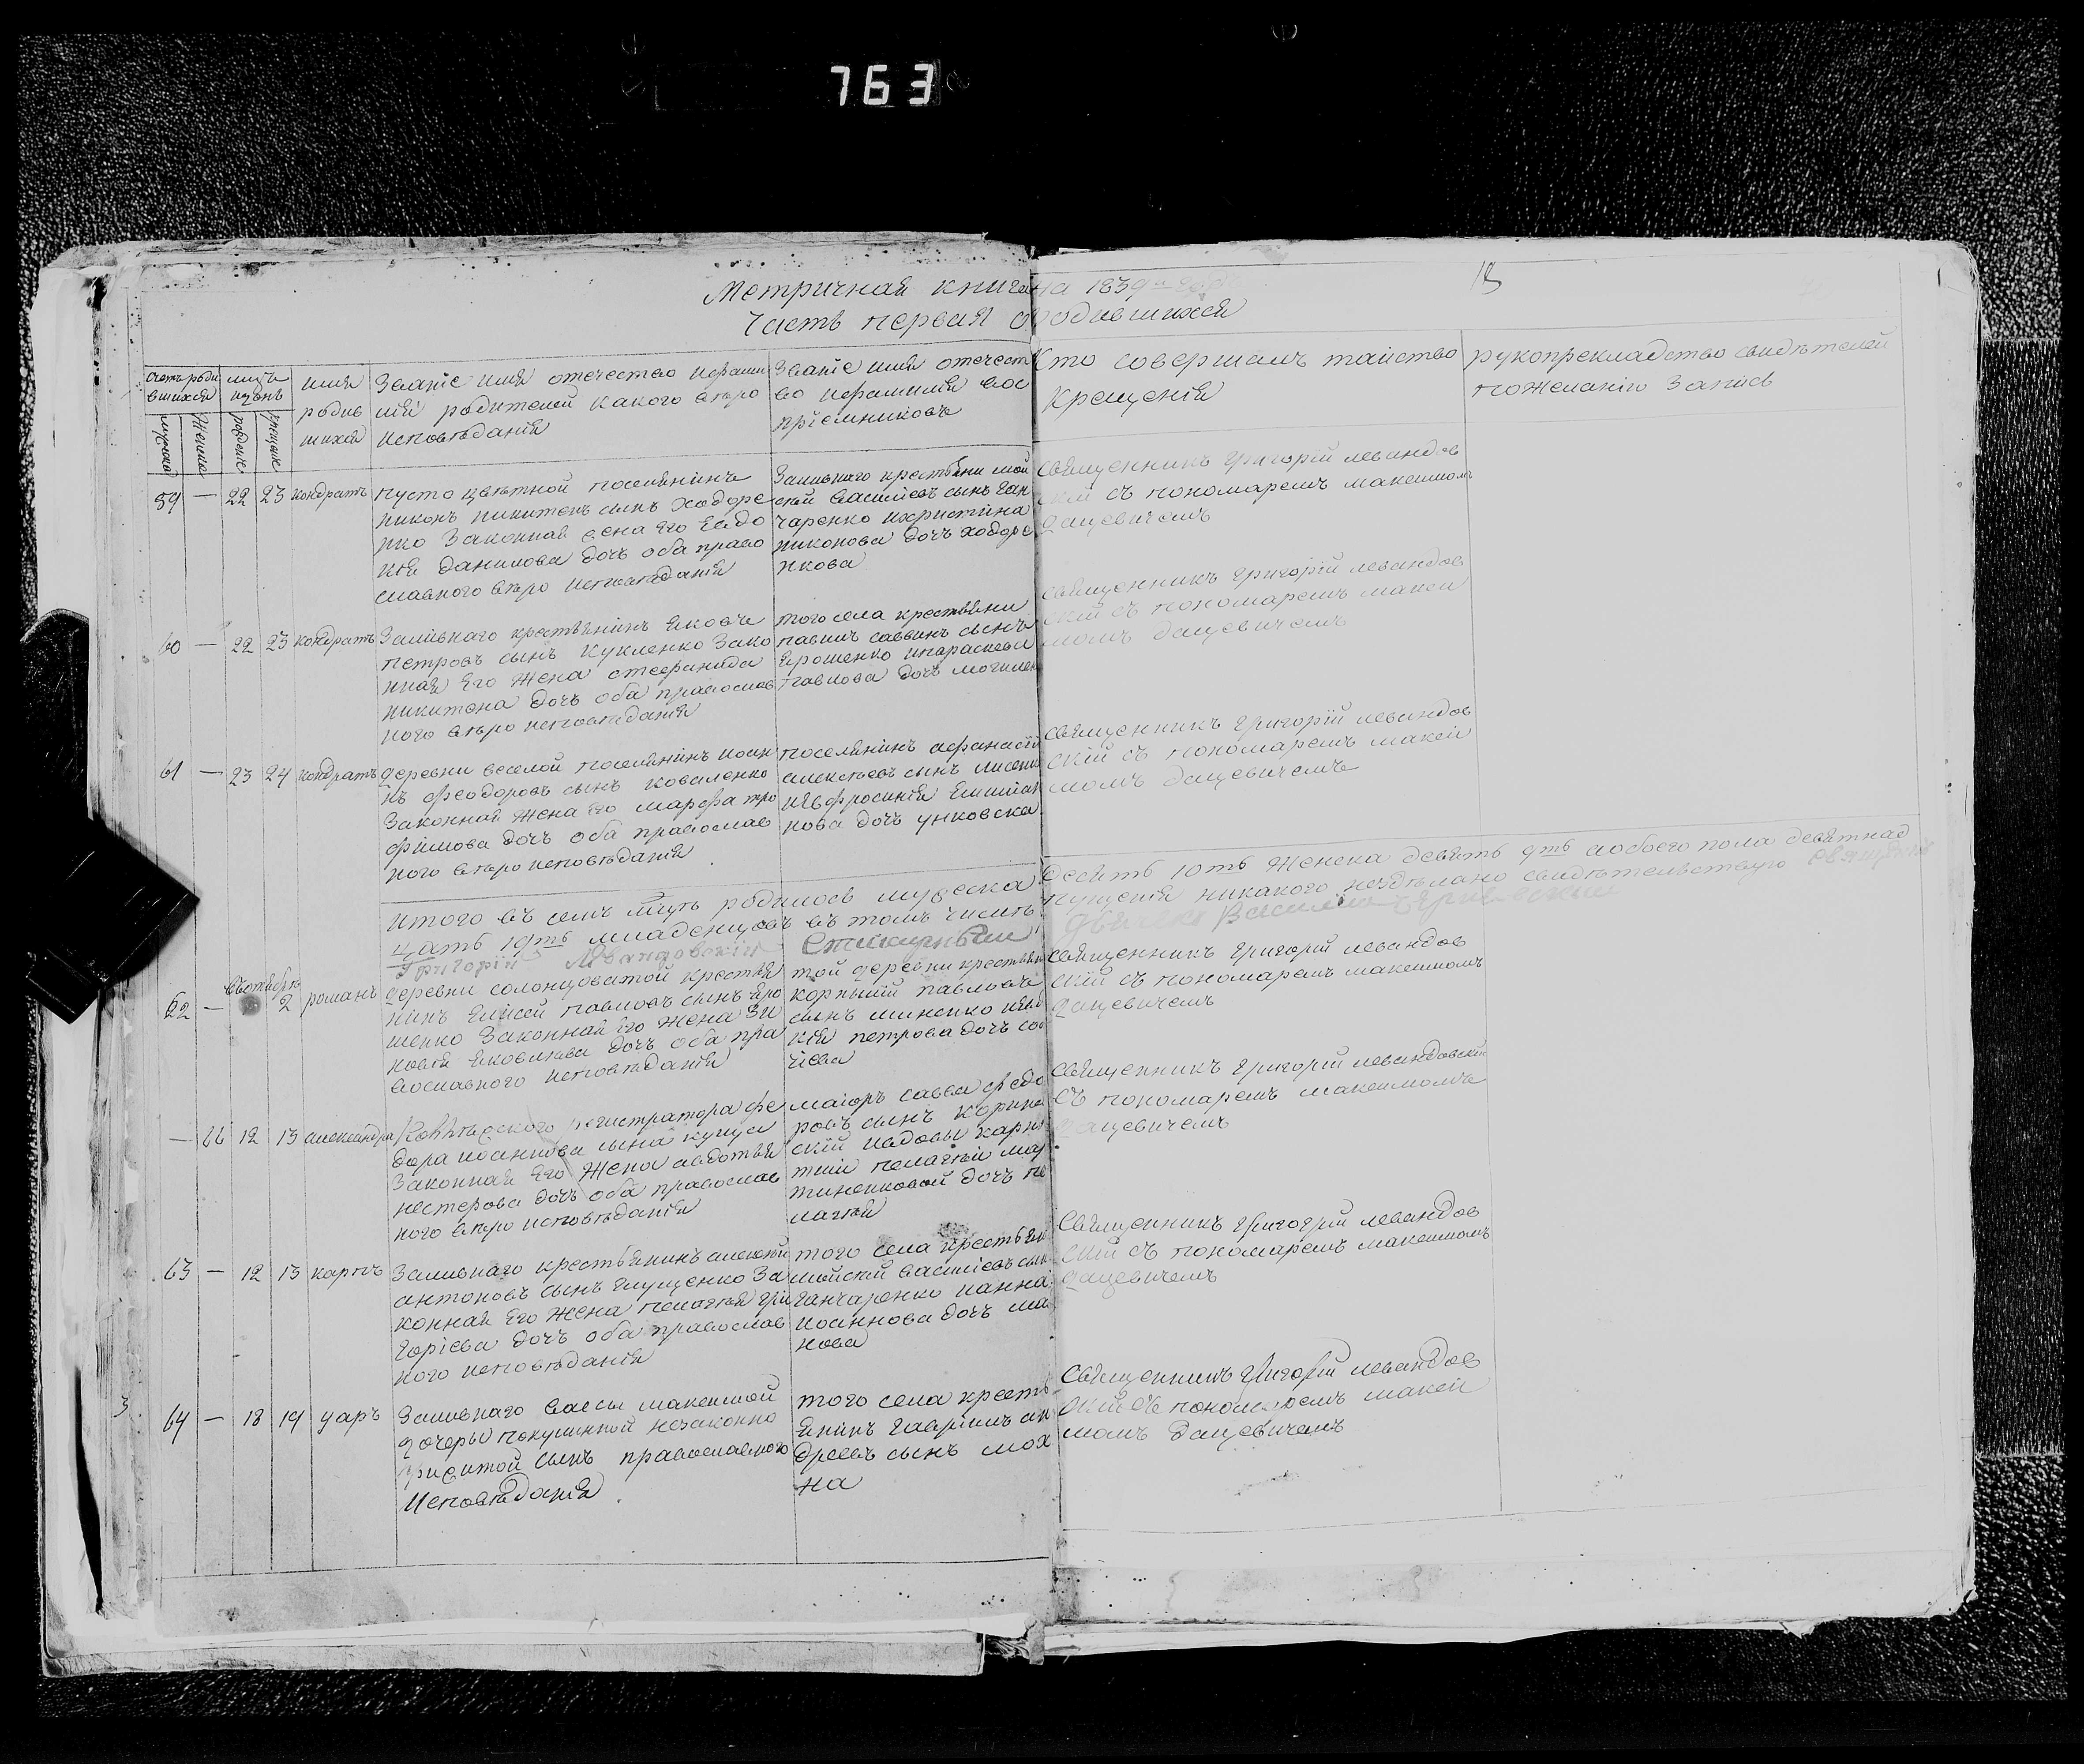 763
18
Метричная книга на 1839й годъ
Часть первая о родившихся
Счетъ роди
вшихся
муска
Женска
мцъ
и день
рожденіе
крещеніе
имя
родив
шихся
Званіе имя отечество ифами
лія родителей какого вѣро
исповѣданія
Званіе имя отечест
во ифамилія вос
пріемниковъ
Кто совершалъ таиство
крещенія
рукоприкладство свидѣтелей
пожеланію Запись
59 — 22 23 кондратъ
пусто цвѣтной поселянинъ
никонъ никитенъ сынъ Ходоре
нко Законная жена Его Евдо
кія данилова дочь оба право
славного вѣро исповѣданія
Заливнаго крестьяни мой
сей василіевъ сынъ ган
чаренко ихристина
никонова дочъ ходоре
нкова
священникъ григорій левандов
скій съ пономаремъ максимомъ
дацевичемъ
60 — 22 23 кондратъ
Заливнаго крестьянинъ яковъ
петровъ сынъ Кукленко Зако
нная Его Жена стефанида
никитена дочъ оба православ
ного вѣро исповѣданія
того села крестьяни
павилъ саввинъ сынъ
Ярошенко ипараскева
павлова дочъ могилен
священникъ григорій левандов
скій съ пономаремъ макси
момъ дацевичемъ
61 — 23 24 кондратъ
деревни веселой поселянинъ иоан
нъ феодоровъ сынъ коваленко
Законная жена Его марфа тро
фимова дочъ оба православ
ного вѣро исповѣданія
поселянинъ афанасій
алексѣевъ сынъ лисенк
иевфросинія Емилиа
нова дочъ унковска
священникъ григорій левандов
скій съ пономаремъ максі
момъ дацевичемъ
итого въ семъ мцѣ родилось мужеска десять 10ть женска девять 9ть аобоего пола девятнад
цать 19ть младенцовъ въ томъ числѣ пущенія никакого нездѣлано свидѣтельствую
Григорій Левандовскій Василій
62 — 2 романъ
деревни солонцоватой крестья
нинъ Елисей павловъ сынъ Яро
шенко Законная Его жена Зи
новія Яковлева дочъ оба пра
вославного исповѣданія
той деревни крестьян
корнилій павловъ
сынъ миненко
кія петрова дочъ
чіева
священникъ григорій левандов
скій съ пономаремъ максимомъ
дацевичемъ
— 66 12 13 александра
регистратора фе
дора иоаннова сына куцуа
Законная Его Жена авдотья
нестерова дочъ оба православ
ного вѣро исповѣданія
маіоръ савва федо
ровъ сынъ
скій ивдовы
пелагіи мар
тиненковой дочъ пе
лагѣя
священникъ григорій левандовскій
съ пономаремъ максимомъ
дацевичемъ
63 — 12 13 карпъ
Заливнаго крестьянинъ алексѣй
антоновъ сынъ Глущенко За
конная Его жена пелагѣя гри
горіева дочъ оба православ
ного исповѣданія
того села крестьян
мойсей василіевъ сын
ганчаренко ианна
иоаннова дочъ ма
нова
священникъ григорій левандов
скій съ пономаремъ максимомъ
дацевичемъ
64 — 18 19 уаръ
Заливнаго вассы максимой
дочеры покушиной незаконно
прижитой сынъ православного
Исповѣданія
того села кресть
янинъ гавріилъ ан
дреевъ сынъ мох
на
священникъ григорій левандов
скій съ пономаремъ максі
момъ дацевичемъ